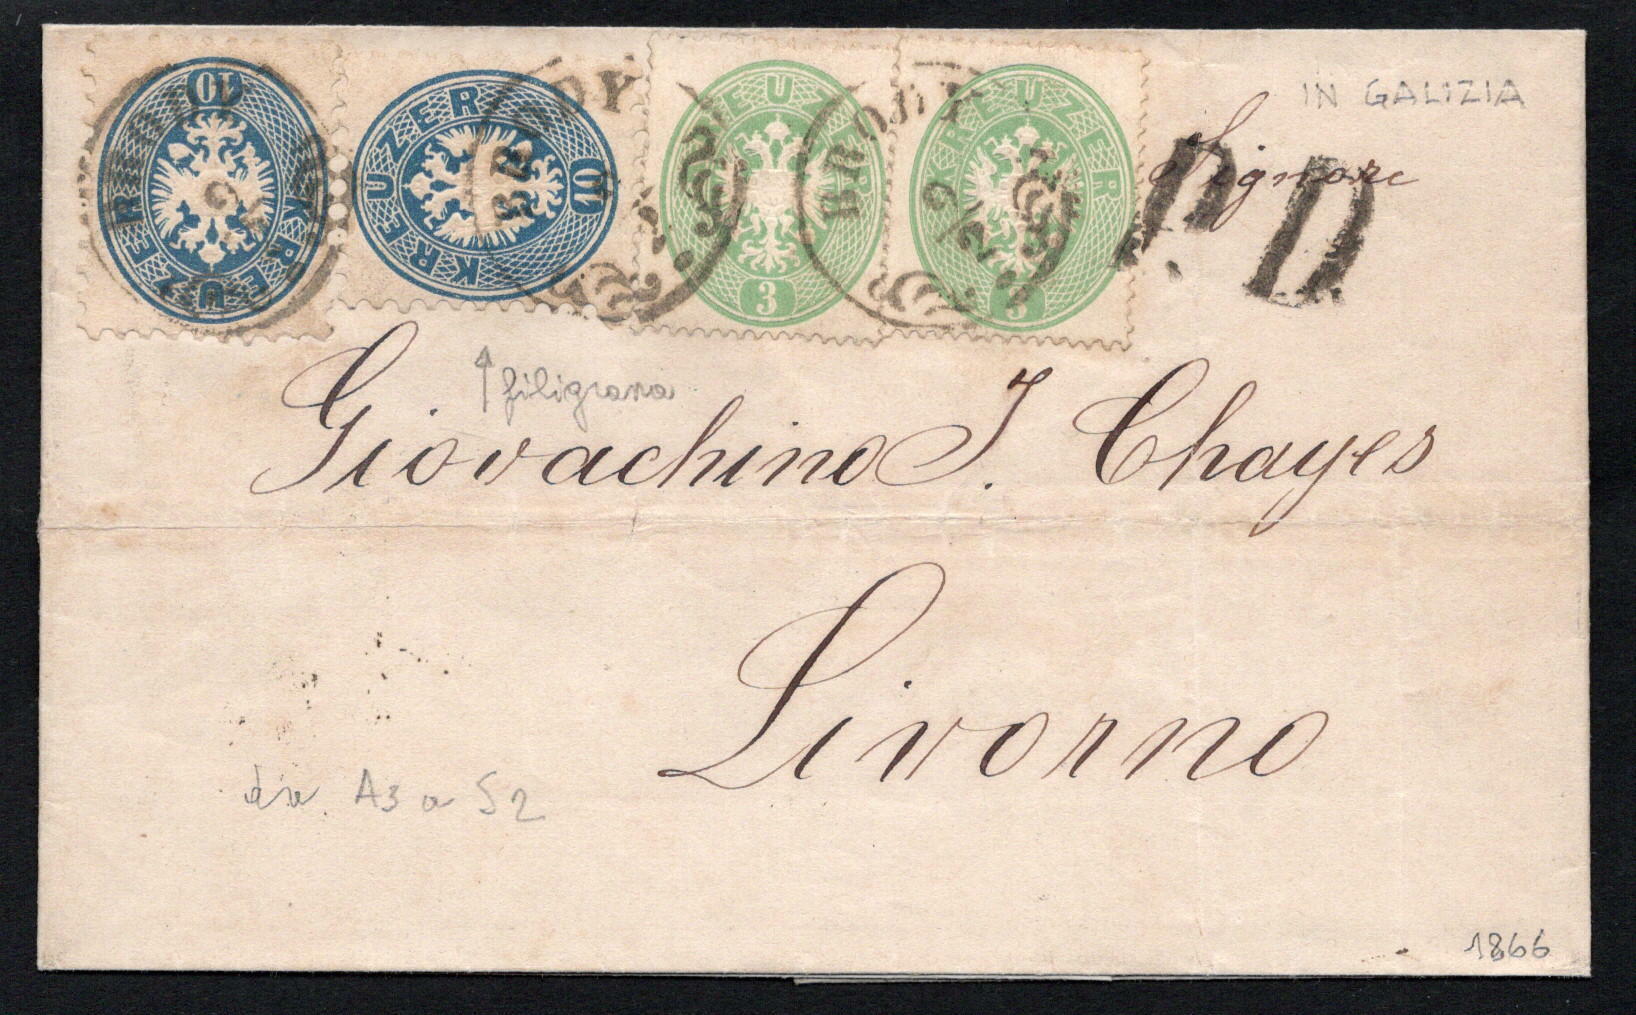 10 KREUZER
KREUZER 10
KREUZER 3
KREUZER 3
BRODY
BRODY
2/9
IN GALIZIA
Signore
P.D
filigrana
Giovachino J. Chayes
Livorno
da A3 a S2
1866